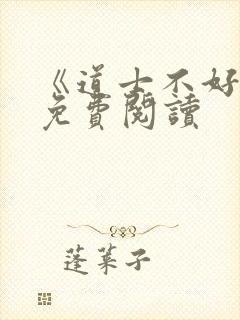 《道士不好
免費閱讀
蓬萊子